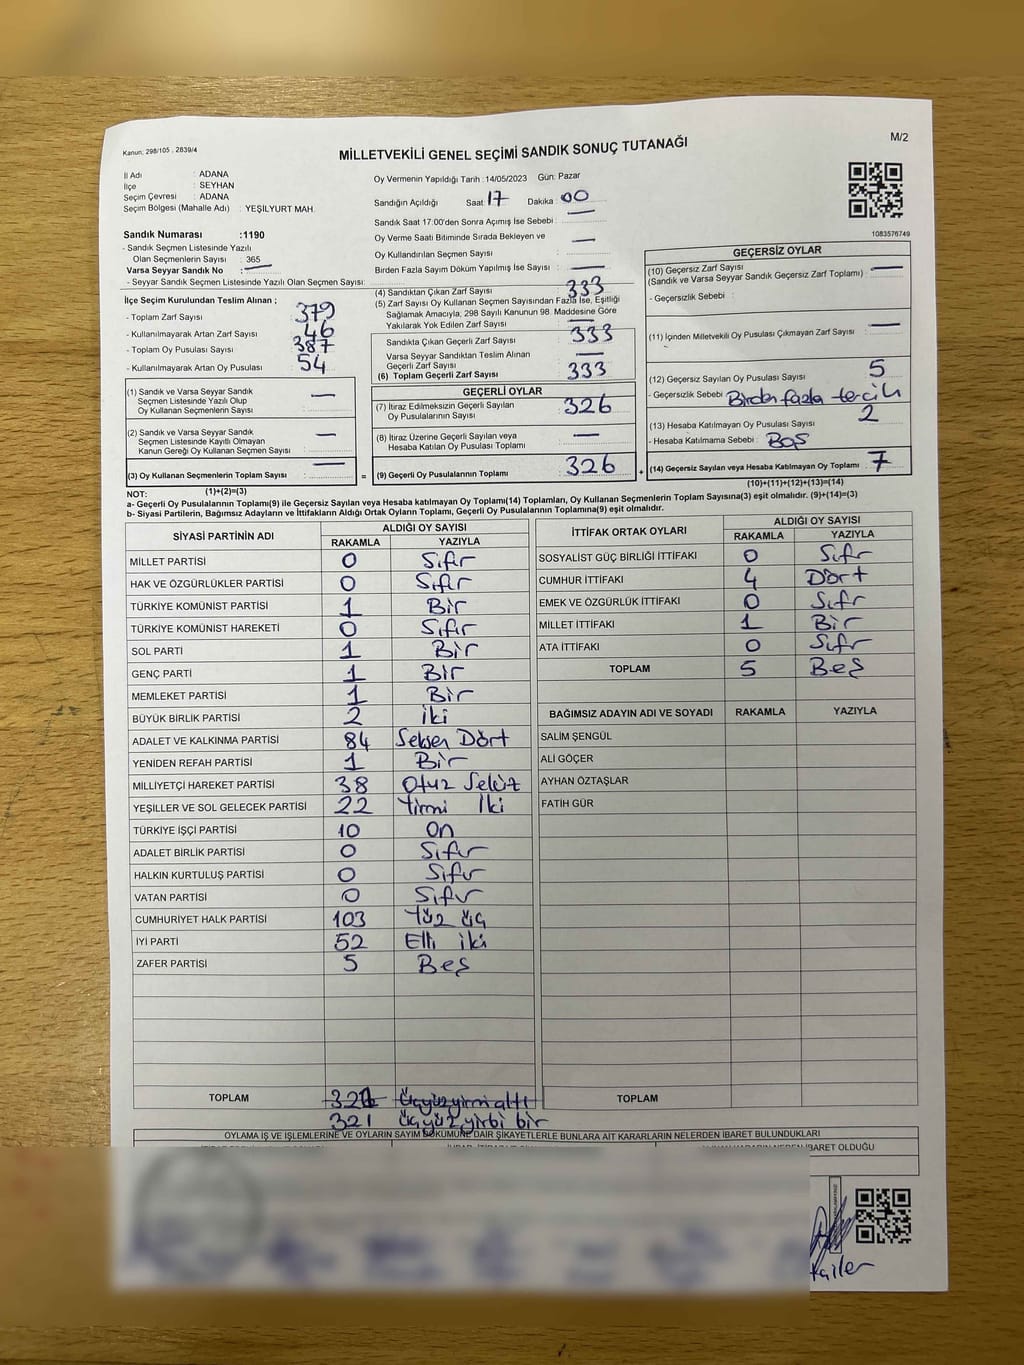 Kanun: 298/105 , 2839/4
M/2
MİLLETVEKİLİ GENEL SEÇİMİ SANDIK SONUÇ TUTANAĞI
İl Adı : ADANA
İlçe : SEYHAN
Seçim Çevresi : ADANA
Seçim Bölgesi (Mahalle Adı) : YEŞİLYURT MAH.
Sandık Numarası :1190
- Sandık Seçmen Listesinde Yazılı
Olan Seçmenlerin Sayısı : 365
Varsa Seyyar Sandık No :
- Seyyar Sandık Seçmen Listesinde Yazılı Olan Seçmen Sayısı:
Oy Vermenin Yapıldığı Tarih : 14/05/2023 Gün: Pazar
Sandığın Açıldığı Saat: 17 Dakika : 00
Sandık Saat 17:00'den Sonra Açımış İse Sebebi : —
Oy Verme Saati Bitiminde Sırada Bekleyen ve
Oy Kullandırılan Seçmen Sayısı : —
Birden Fazla Sayım Döküm Yapılmış İse Sayısı : —
1083576749
İlçe Seçim Kurulundan Teslim Alınan ;
- Toplam Zarf Sayısı : 379
- Kullanılmayarak Artan Zarf Sayısı : 46
- Toplam Oy Pusulası Sayısı : 387
- Kullanılmayarak Artan Oy Pusulası : 54
(1) Sandık ve Varsa Seyyar Sandık
Seçmen Listesinde Yazılı Olup
Oy Kullanan Seçmenlerin Sayısı : —
(2) Sandık ve Varsa Seyyar Sandık
Seçmen Listesinde Kayıtlı Olmayan
Kanun Gereği Oy Kullanan Seçmen Sayısı : —
(3) Oy Kullanan Seçmenlerin Toplam Sayısı : —
(1)+(2)=(3)
(4) Sandıktan Çıkan Zarf Sayısı : 333
(5) Zarf Sayısı Oy Kullanan Seçmen Sayısından Fazla İse, Eşitliği
Sağlamak Amacıyla, 298 Sayılı Kanunun 98. Maddesine Göre
Yakılarak Yok Edilen Zarf Sayısı : —
Sandıkta Çıkan Geçerli Zarf Sayısı : 333
Varsa Seyyar Sandıktan Teslim Alınan
Geçerli Zarf Sayısı : —
(6) Toplam Geçerli Zarf Sayısı : 333
GEÇERLİ OYLAR
(7) İtiraz Edilmeksizin Geçerli Sayılan
Oy Pusulalarının Sayısı : 326
(8) İtiraz Üzerine Geçerli Sayılan veya
Hesaba Katılan Oy Pusulası Toplamı : —
= (9) Geçerli Oy Pusulalarının Toplamı : 326 +
GEÇERSİZ OYLAR
(10) Geçersiz Zarf Sayısı : —
(Sandık ve Varsa Seyyar Sandık Geçersiz Zarf Toplamı)
- Geçersizlik Sebebi :
(11) İçinden Milletvekili Oy Pusulası Çıkmayan Zarf Sayısı : —
(12) Geçersiz Sayılan Oy Pusulası Sayısı : 5
- Geçersizlik Sebebi : Birden fazla tercih
(13) Hesaba Katılmayan Oy Pusulası Sayısı : 2
- Hesaba Katılmama Sebebi : Boş
(14) Geçersiz Sayılan veya Hesaba Katılmayan Oy Toplamı : 7
(10)+(11)+(12)+(13)=(14)
NOT:
a- Geçerli Oy Pusulalarının Toplamı(9) ile Geçersiz Sayılan veya Hesaba katılmayan Oy Toplamı(14) Toplamları, Oy Kullanan Seçmenlerin Toplam Sayısına(3) eşit olmalıdır. (9)+(14)=(3)
b- Siyasi Partilerin, Bağımsız Adayların ve İttifakların Aldığı Ortak Oyların Toplamı, Geçerli Oy Pusulalarının Toplamına(9) eşit olmalıdır.
SİYASİ PARTİNİN ADI ALDIĞI OY SAYISI
RAKAMLA YAZIYLA
MİLLET PARTİSİ 0 Sıfır
HAK VE ÖZGÜRLÜKLER PARTİSİ 0 Sıfır
TÜRKİYE KOMÜNİST PARTİSİ 1 Bir
TÜRKİYE KOMÜNİST HAREKETİ 0 Sıfır
SOL PARTİ 1 Bir
GENÇ PARTİ 1 Bir
MEMLEKET PARTİSİ 1 Bir
BÜYÜK BİRLİK PARTİSİ 2 İki
ADALET VE KALKINMA PARTİSİ 84 Seksen Dört
YENİDEN REFAH PARTİSİ 1 Bir
MİLLİYETÇİ HAREKET PARTİSİ 38 Otuz Sekiz
YEŞİLLER VE SOL GELECEK PARTİSİ 22 Yirmi İki
TÜRKİYE İŞÇİ PARTİSİ 10 On
ADALET BİRLİK PARTİSİ 0 Sıfır
HALKIN KURTULUŞ PARTİSİ 0 Sıfır
VATAN PARTİSİ 0 Sıfır
CUMHURİYET HALK PARTİSİ 103 Yüz üç
İYİ PARTİ 52 Elli iki
ZAFER PARTİSİ 5 Beş
TOPLAM 326 Üçyüzyirmialtı
321 Üçyüzyirbi bir
İTTİFAK ORTAK OYLARI ALDIĞI OY SAYISI
RAKAMLA YAZIYLA
SOSYALİST GÜÇ BİRLİĞİ İTTİFAKI 0 Sıfır
CUMHUR İTTİFAKI 4 Dört
EMEK VE ÖZGÜRLÜK İTTİFAKI 0 Sıfır
MİLLET İTTİFAKI 1 Bir
ATA İTTİFAKI 0 Sıfır
TOPLAM 5 Beş
BAĞIMSIZ ADAYIN ADI VE SOYADI RAKAMLA YAZIYLA
SALİM ŞENGÜL
ALİ GÖÇER
AYHAN ÖZTAŞLAR
FATİH GÜR
TOPLAM
OYLAMA İŞ VE İŞLEMLERİNE VE OYLARIN SAYIM DÖKÜMÜNE DAİR ŞİKAYETLERLE BUNLARA AİT KARARLARIN NELERDEN İBARET BULUNDUKLARI
İBARET OLDUĞU